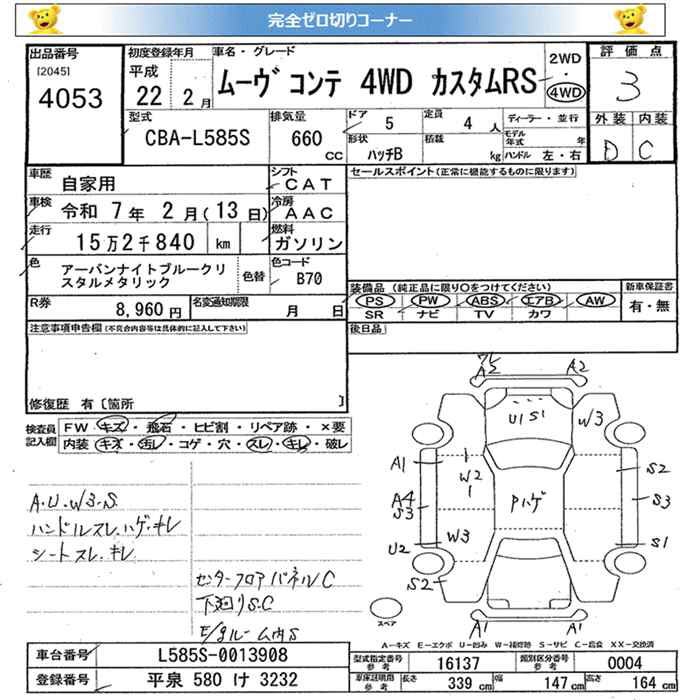 完全ゼロ切りコーナー
出品番号
[2045]
4053
初度登録年月
平成
22 年 2 月
車名・グレード
ムーヴ コンテ 4WD カスタムRS
2WD
・
4WD
評価点
3
外装 内装
D C
型式
CBA-L585S
排気量
660
CC
ドア 5
形状 ハッチB
定員 4 人
積載 kg
ディーラー・並行
モデル年式 年
ハンドル 左・右
車歴 自家用
シフト CAT
車検 令和 7年 2月(13日)
冷房 AAC
走行 15万2千840 km
燃料 ガソリン
色 アーバンナイトブルークリスタルメタリック
色替
色コード B70
R券 8,960円
名変通知期限 月 日
セールスポイント(正常に機能するものに限ります)
装備品(純正品に限り○をつけてください)
PS PW ABS エアB AW
SR ナビ TV カワ
新車保証書
有・無
後日品
注意事項申告欄(不具合内容等は具体的に記入して下さい)
修復歴 有〔箇所 〕
検査員記入欄
FW・キズ・飛石・ヒビ割・リペア跡・×要
内装・キズ・汚レ・コゲ・穴・スレ・キレ・破レ
A.U.W3.S
ハンドルスレ.ハゲ.キレ
シートスレ.キレ
センターフロアパネルC
下廻りS.C
E/gルーム内S
A2
A2
U1 S1
W3
A1
W2
S2
A4
S3
Pハゲ
S3
U2
W3
S1
S2
A1
A1
スペア
A-キズ E-エクボ U-凹み W-補修跡 S-サビ C-腐食 XX-交換済
車台番号 L585S-0013908
登録番号 平泉 580 け 3232
型式指定番号 参考 16137
類別区分番号 参考 0004
車体証明用 参考
長さ 339 cm
幅 147 cm
高さ 164 cm